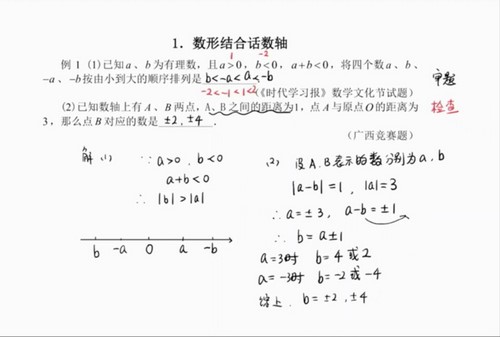 1. 数形结合话数轴
1 -2
例 1 (1)已知 a、b 为有理数，且 a>0，b<0，a+b<0，将四个数 a、b、
-a、-b 按由小到大的顺序排列是 b<-a<a<-b 审题
-2<-1<1<2 《时代学习报》数学文化节试题)
(2)已知数轴上有 A、B 两点，A、B 之间的距离为1，点 A 与原点 O 的距离为 检查
3，那么点 B 对应的数是 ±2, ±4 .
(广西竞赛题)
解 (1) ∵ a>0, b<0
a+b<0
∴ |b|>|a|
b -a 0 a -b
(2) 设 A、B 表示的数分别为 a, b
|a-b|=1, |a|=3
∴ a=±3, a-b=±1
∴ b=a±1
a=3时 b=4 或 2
a=-3时 b=-2 或 -4
综上, b=±2, ±4